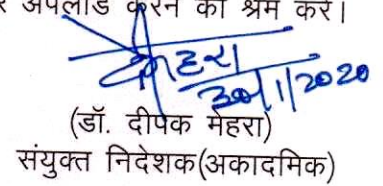 अपलोड करने का श्रम करें।
मेहरा
30/1/2020
(डॉ. दीपक मेहरा)
संयुक्त निदेशक(अकादमिक)